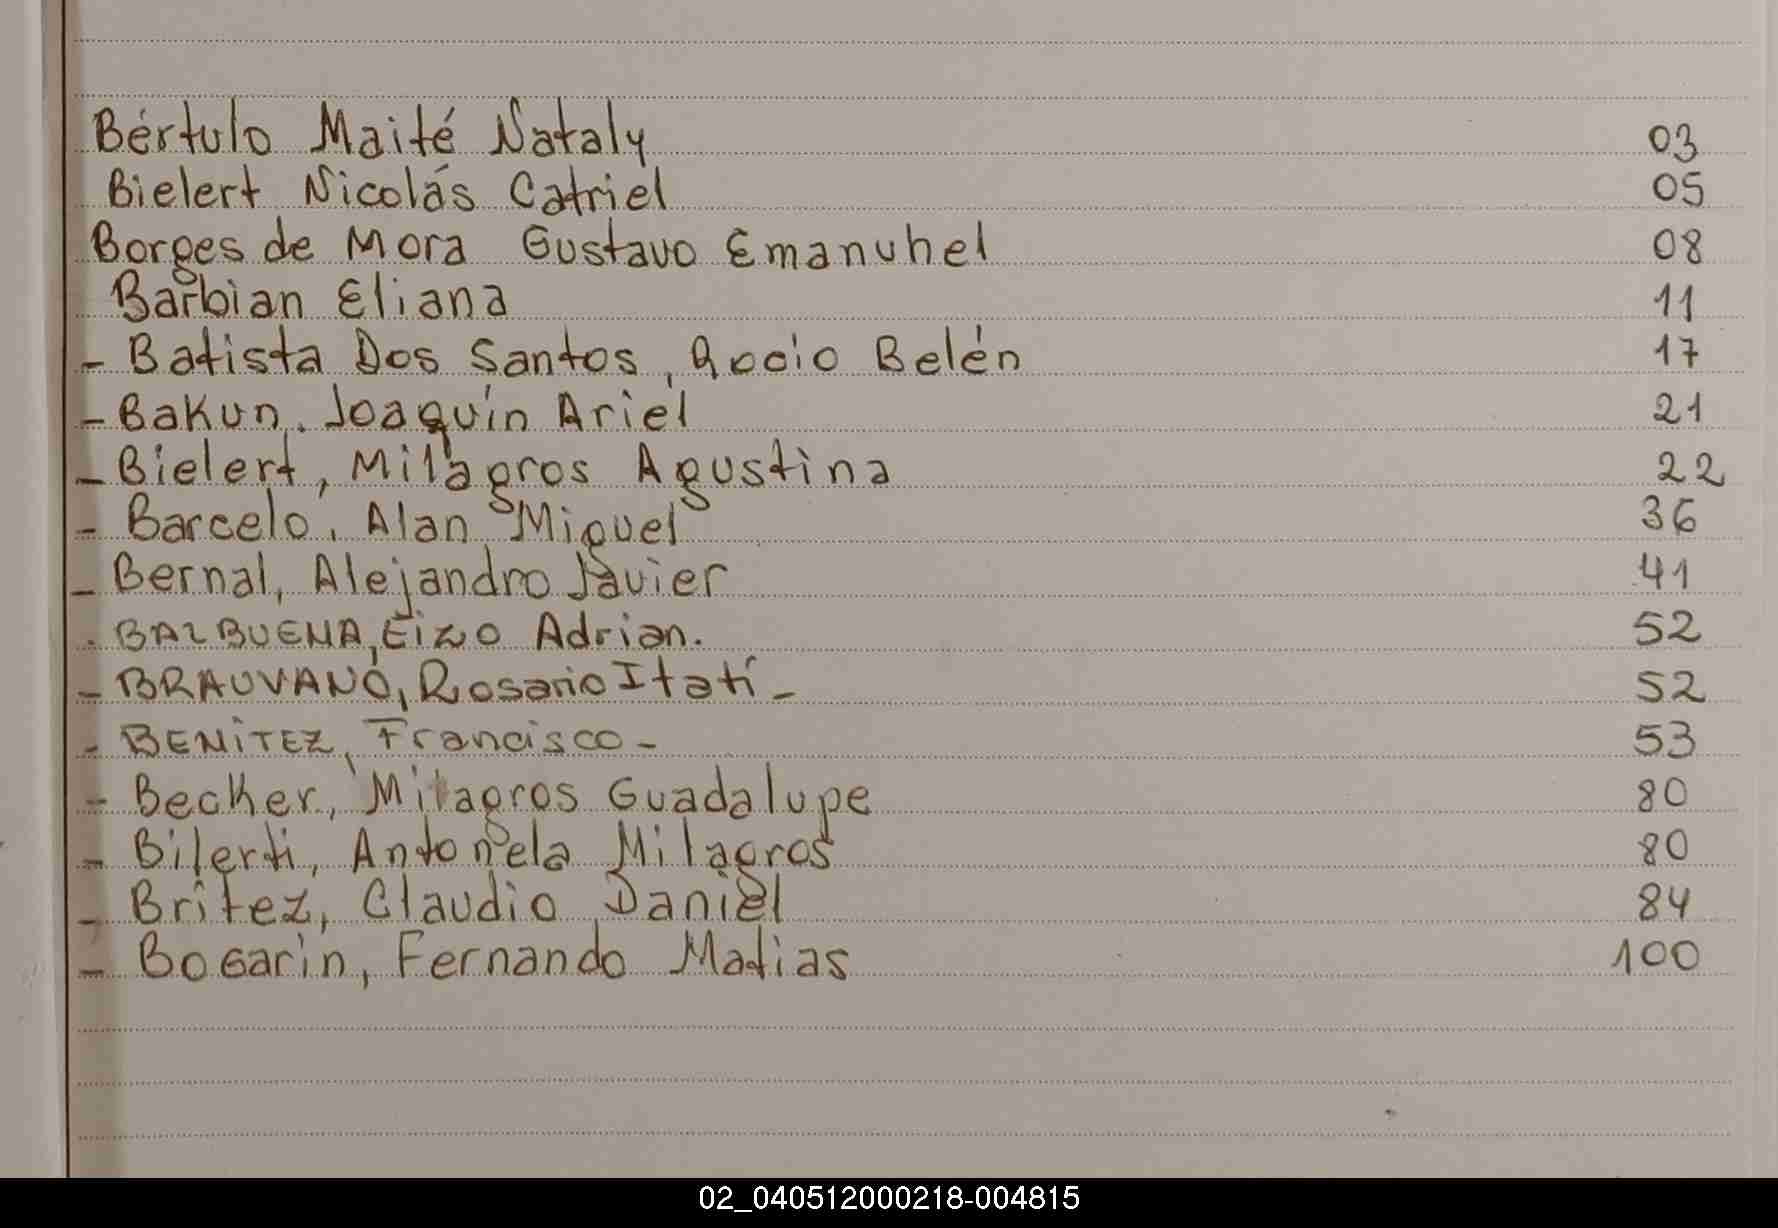 Bértulo Maité Nataly 03
Bielert Nicolás Catriel 05
Borges de Mora Gustavo Emanuhel 08
Barbian Eliana 11
- Batista Dos Santos, Rocío Belén 17
- Bakun, Joaquín Ariel 21
- Bielert, Milagros Agustina 22
- Barcelo, Alan Miguel 36
- Bernal, Alejandro Javier 41
- BALBUENA, Eizo Adrian. 52
- BRAUVANO, Rosario Itatí - 52
- BENITEZ, Francisco - 53
- Becker, Milagros Guadalupe 80
- Bilerti, Antonela Milagros 80
- Britez, Claudio Daniel 84
- Bogarin, Fernando Matias 100
02_040512000218-004815